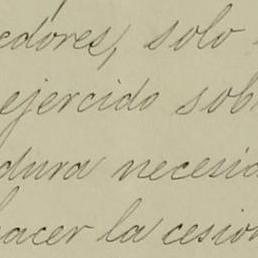 edores, solo
ejercido sob
dura necesid
hacer la cesion